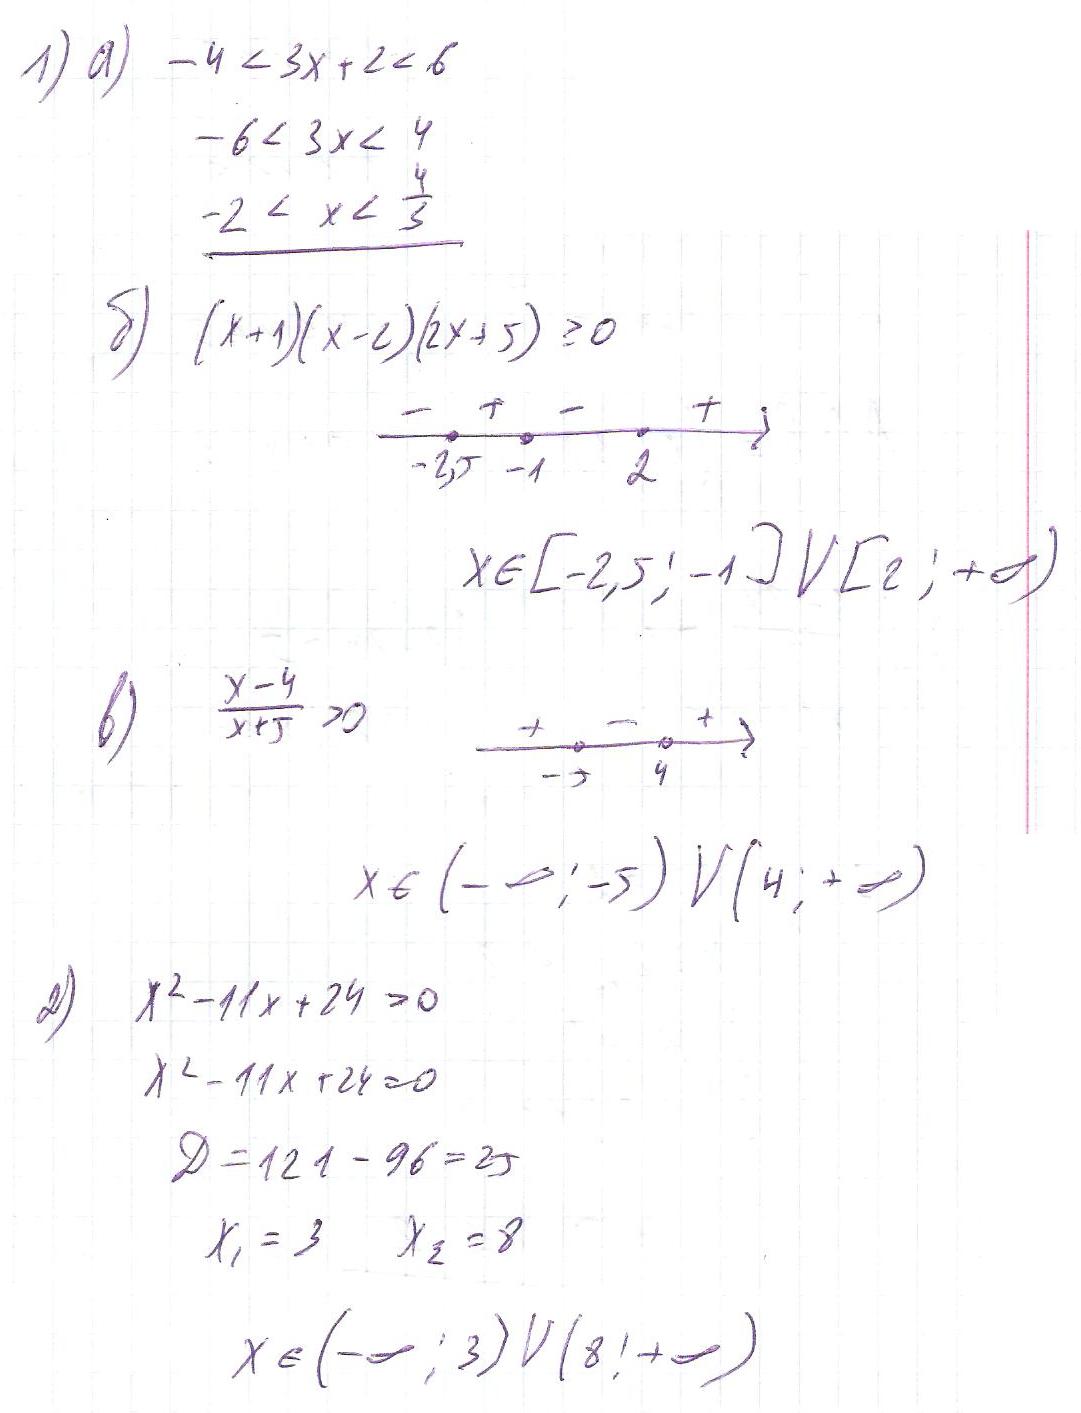 1) а) -4 < 3x + 2 < 6
-6 < 3x < 4
-2 < x < 4/3
б) (x+1)(x-2)(2x+5) ≥ 0
- + - +
-2,5 -1 2
x ∈ [-2,5; -1] V [2; +∞)
в) (x-4)/(x+5) > 0
+ - +
-5 4
x ∈ (-∞; -5) V (4; +∞)
2) x² - 11x + 24 > 0
x² - 11x + 24 = 0
D = 121 - 96 = 25
x₁ = 3 x₂ = 8
x ∈ (-∞; 3) V (8; +∞)